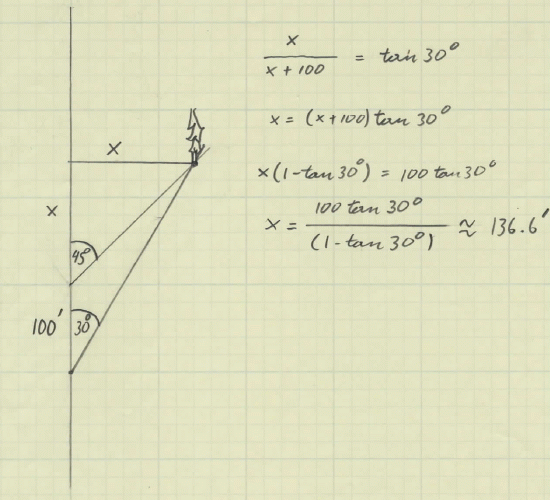 x
x
45°
100'
30°
x / x + 100 = tan 30°
x = (x+100) tan 30°
x(1-tan 30°) = 100 tan 30°
x = 100 tan 30° / (1-tan 30°) ≈ 136.6'